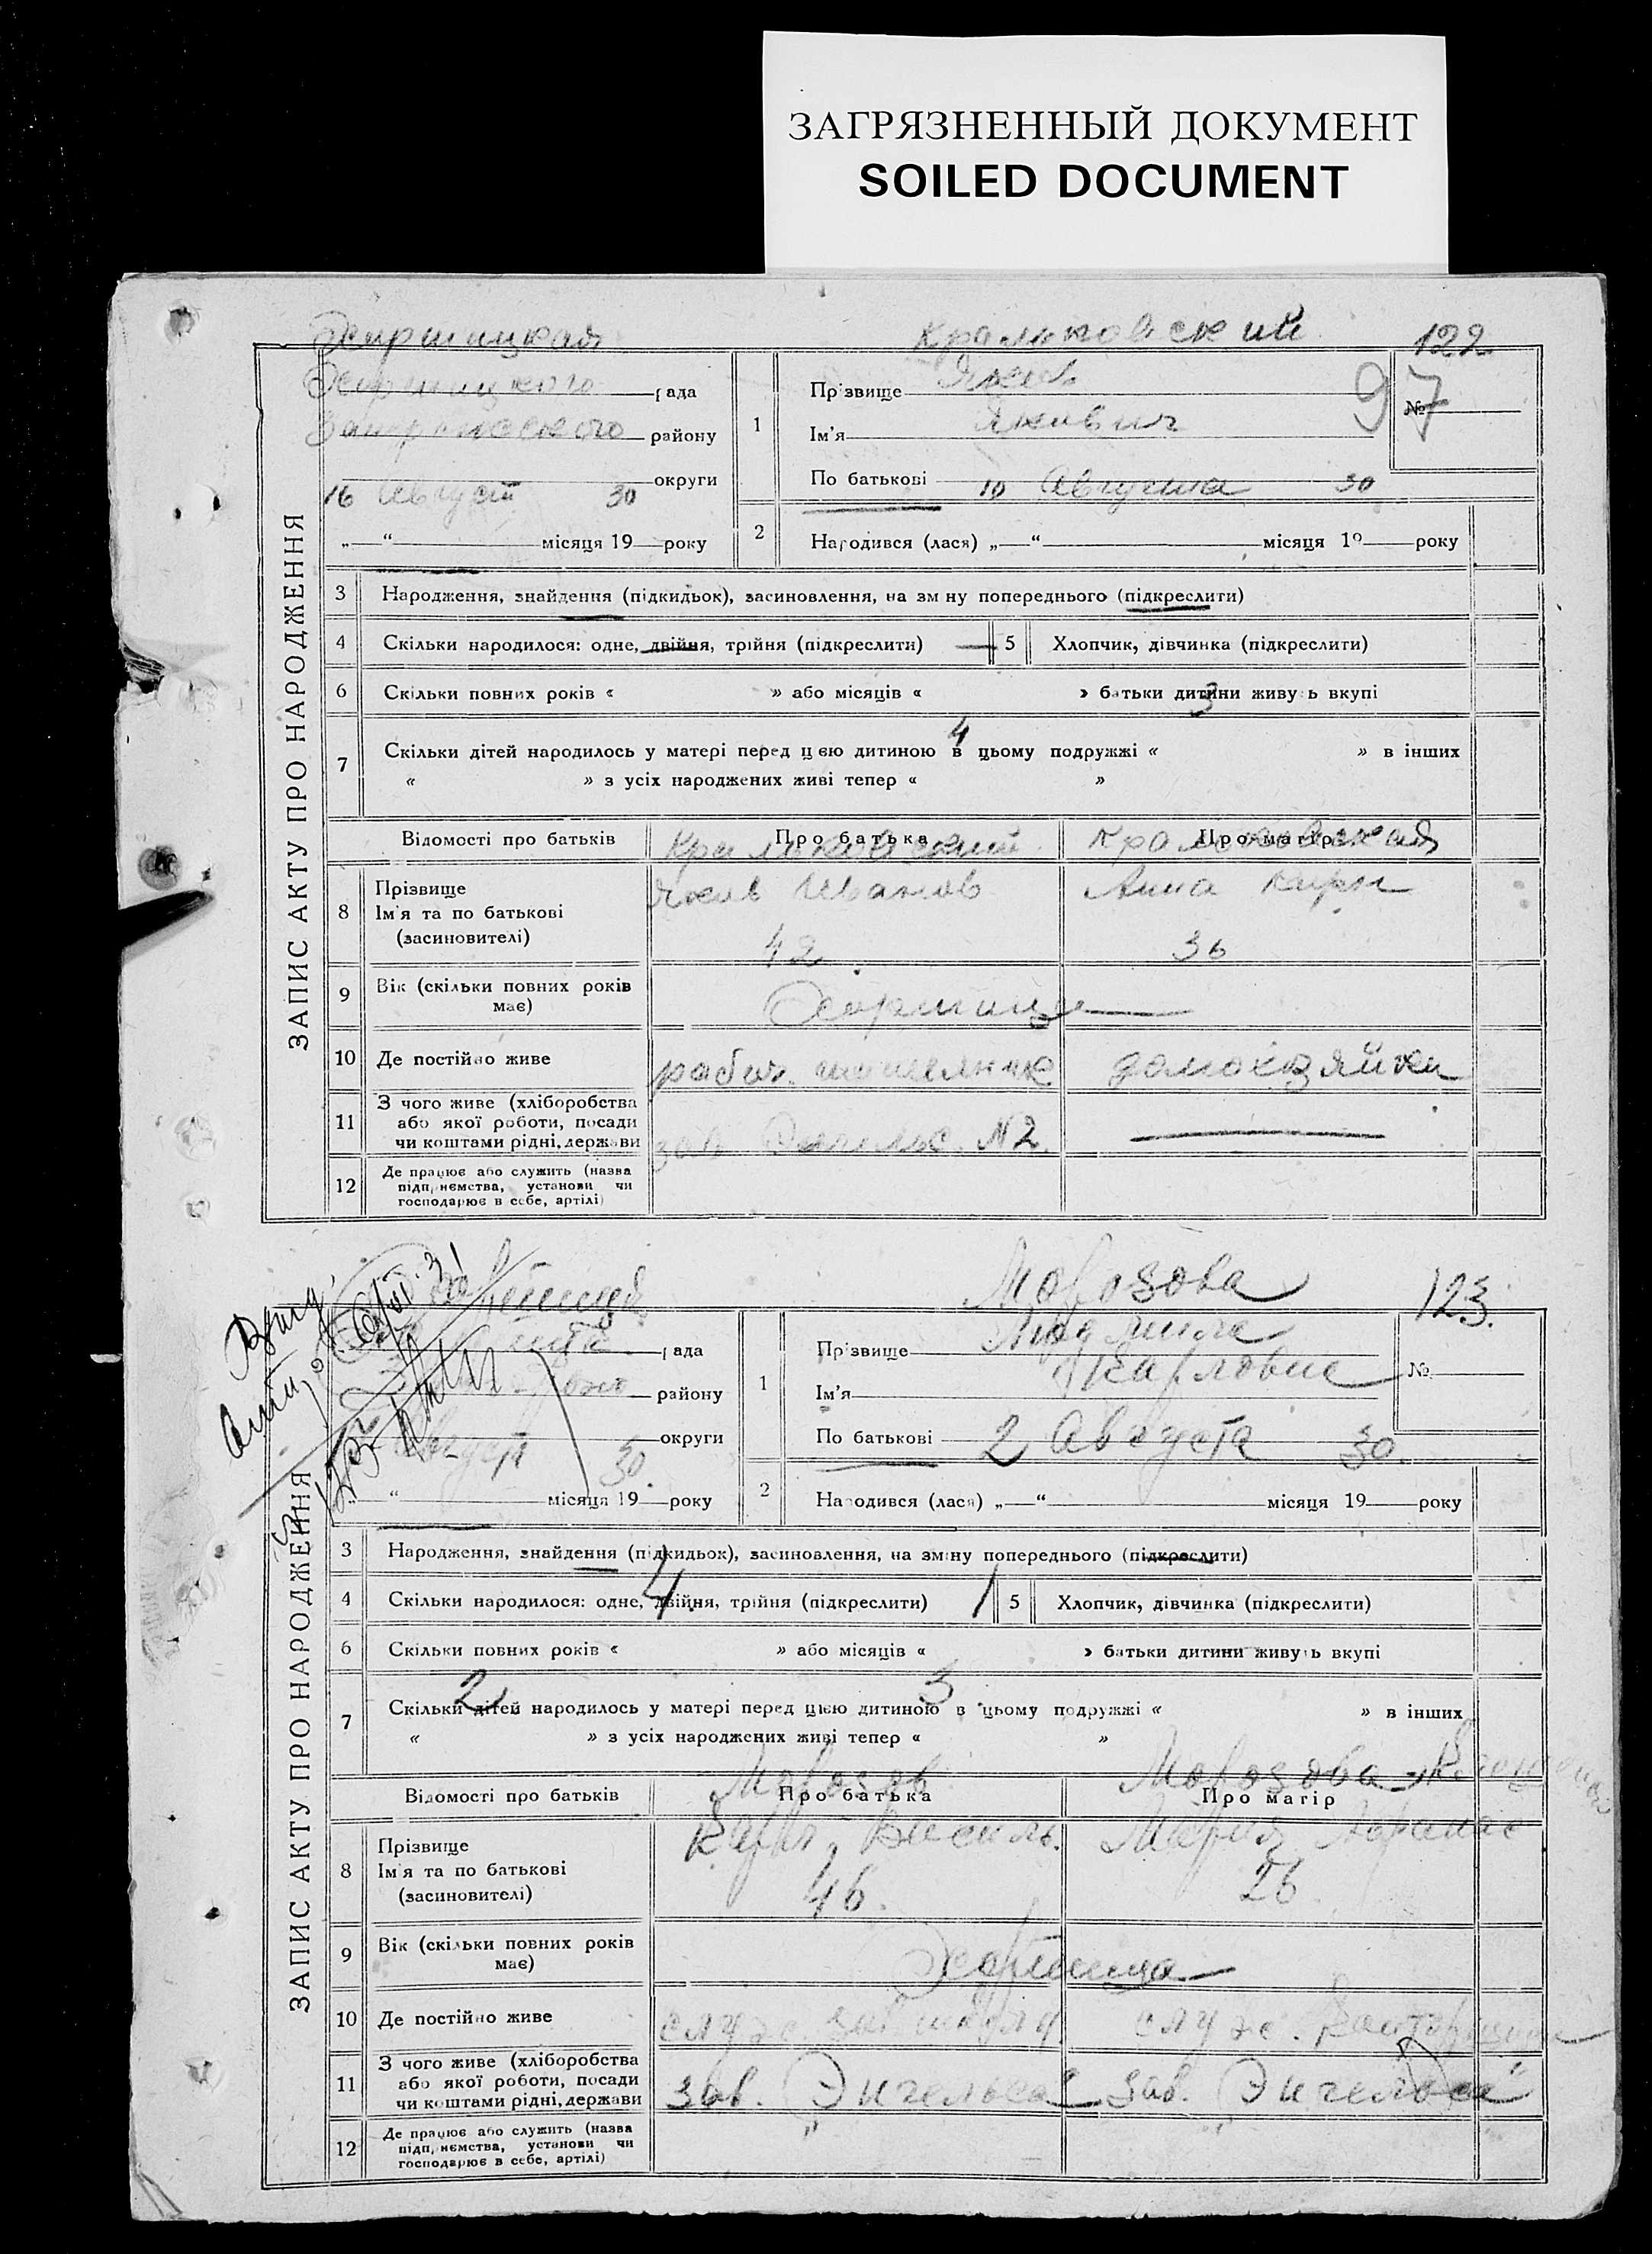 ЗАГРЯЗНЕННЫЙ ДОКУМЕНТ
SOILED DOCUMENT
ЗАПИС АКТУ ПРО НАРОДЖЕННЯ
Хортицкая
Хортицкого рада
Запорожского району
округи
16 Август 30
„ “ місяця 19 року
122
97
№
Кральковский
1 Прізвище Яков
Ім’я Якович
По батькові 10 Августа 30
2 Народився (лася) „ “ місяця 19 року
3 Народження, знайдення (підкидьок), засиновлення, на зміну попереднього (підкреслити)
4 Скільки народилося: одне, двійня, трійня (підкреслити)
5 Хлопчик, дівчинка (підкреслити)
6 Скільки повних років « » або місяців « » батьки дитини живуть вкупі
4 3
7 Скільки дітей народилось у матері перед цією дитиною в цьому подружжі « » в інших
« » з усіх народжених живі тепер « »
Відомості про батьків Про батька Про матір
Кральковский Кральковская
8 Прізвище
Ім’я та по батькові
(засиновителі)
Яков Иванов Анна Кирил
42 36
9 Вік (скільки повних років має)
Хортица
10 Де постійно живе
рабоч. домохазяйка
11 З чого живе (хліборобства
або якої роботи, посади
чи коштами рідні, держави
зав Энгельс. N2.
12 Де працює або служить (назва
підприємства, установи чи
господарює в себе, артілі)
ЗАПИС АКТУ ПРО НАРОДЖЕННЯ
рада
району
округи
Август 30.
„ “ місяця 19 року
123.
№
Морозова
1 Прізвище Людмила
Ім’я Карловна
По батькові 2 Августа 30.
2 Народився (лася) „ “ місяця 19 року
3 Народження, знайдення (підкидьок), засиновлення, на зміну попереднього (підкреслити)
4 Скільки народилося: одне, двійня, трійня (підкреслити)
4 1
5 Хлопчик, дівчинка (підкреслити)
6 Скільки повних років « » або місяців « » батьки дитини живуть вкупі
2 3
7 Скільки дітей народилось у матері перед цією дитиною в цьому подружжі « » в інших
« » з усіх народжених живі тепер « »
Відомості про батьків Про батька Про матір
Морозов Морозова
8 Прізвище
Ім’я та по батькові
(засиновителі)
Карл Василь. Мария Афанас
46. 26
9 Вік (скільки повних років має)
Хортица
10 Де постійно живе
служ. служ.
11 З чого живе (хліборобства
або якої роботи, посади
чи коштами рідні, держави
зав. „Энгельса“ зав. „Энгельса“
12 Де працює або служить (назва
підприємства, установи чи
господарює в себе, артілі)